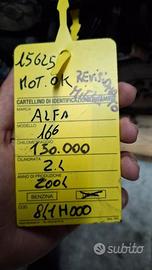 15625
MOT. OK
REVISIO
CARTELLINO DI IDENTIFICAZIONE
MARCA
ALFA
MODELLO
166
CHILOMETRAGGIO
150.000
CILINDRATA
2.4
ANNO DI PRODUZIONE
2004
BENZINA
COD.
841H000
subito